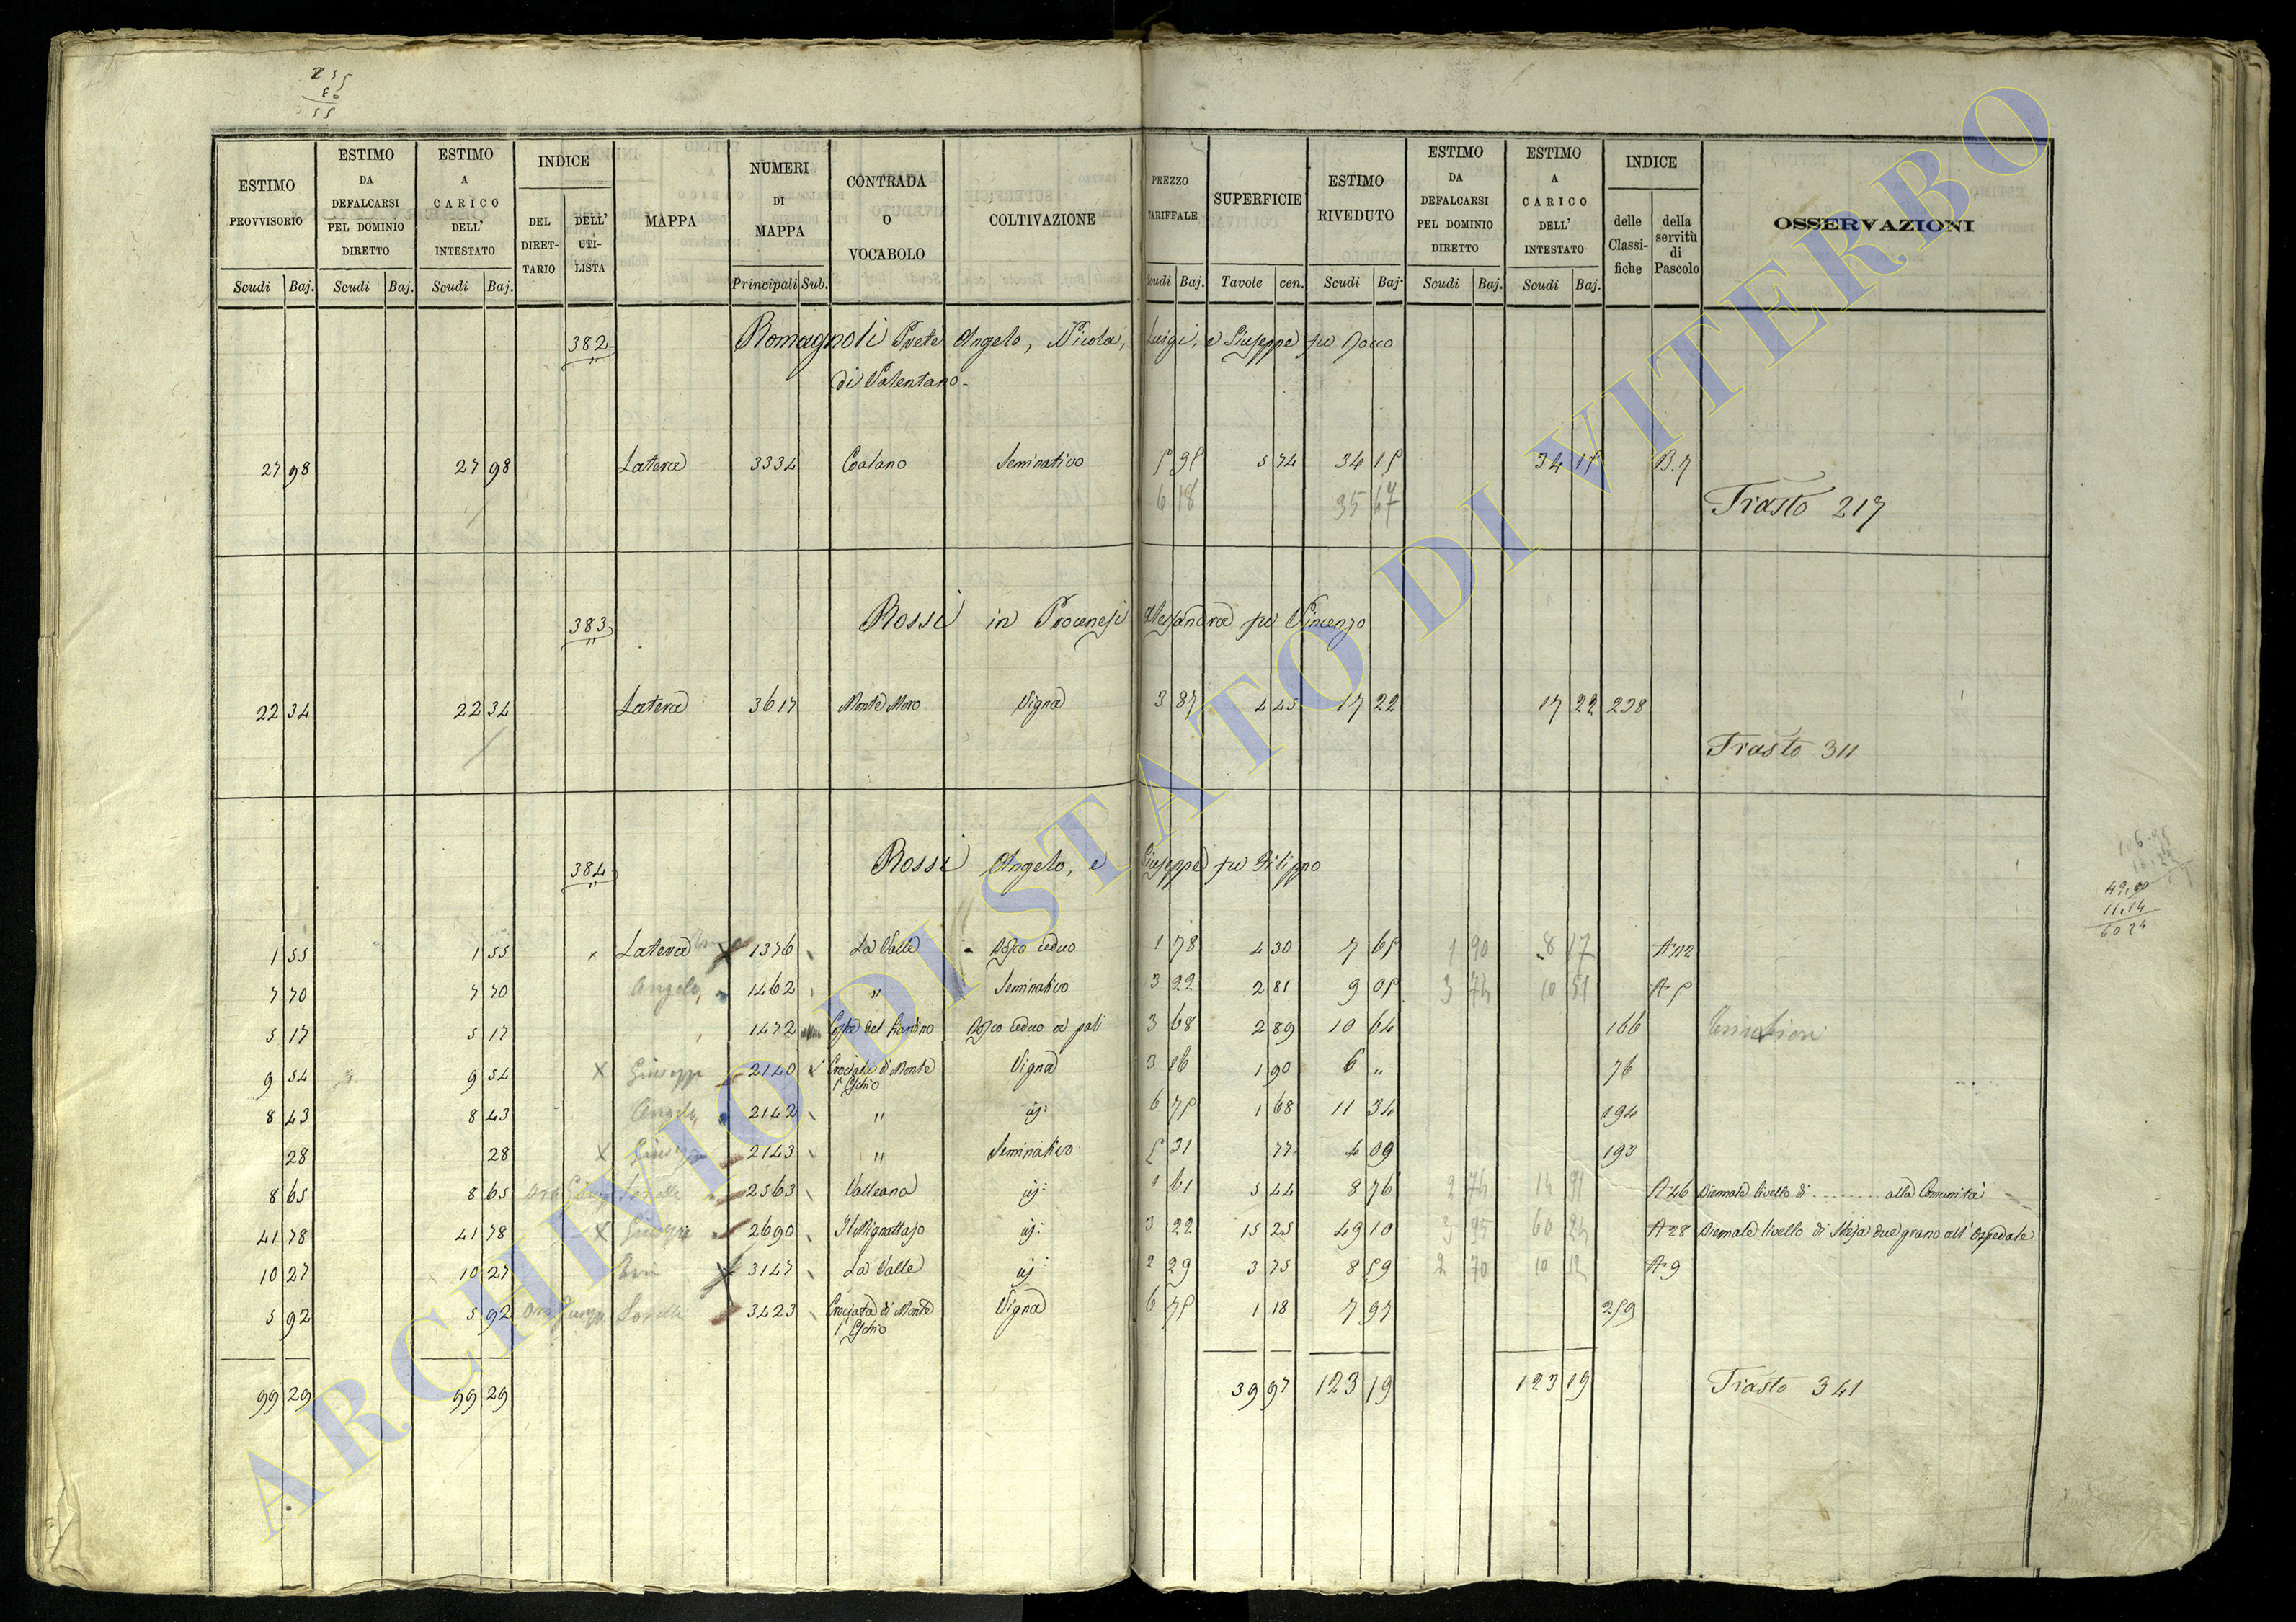 255
80
55
ESTIMO PROVVISORIO | ESTIMO DA DEFALCARSI PEL DOMINIO DIRETTO | ESTIMO A CARICO DELL' INTESTATO | INDICE | MAPPA | NUMERI DI MAPPA | CONTRADA O VOCABOLO | COLTIVAZIONE | PREZZO TARIFFALE | SUPERFICIE | ESTIMO RIVEDUTO | ESTIMO DA DEFALCARSI PEL DOMINIO DIRETTO | ESTIMO A CARICO DELL' INTESTATO | INDICE | OSSERVAZIONI
DEL DIRETTARIO | DELL' UTILISTA | delle Classifiche | della servitù di Pascolo
Scudi Baj. | Scudi Baj. | Scudi Baj. | Principali Sub. | Scudi Baj. | Tavole cen. | Scudi Baj. | Scudi Baj. | Scudi Baj.
382 Romagnoli Prete Angelo, Nicola, Luigi, e Giuseppe fu Rocco
di Valentano
27 98 | 27 98 | Latera | 3334 | Coalano | Seminativo | 5 95 | 5 74 | 34 15 | 34 15 | B. 7
6 18 | 35 47
Trasto 217
383 Rossi in Procenesi Alessandra fu Vincenzo
22 34 | 22 34 | Latera | 3617 | Monte Moro | Vigna | 3 87 | 4 45 | 17 22 | 17 22 | 238
Trasto 311
384 Rossi Angelo, e Giuseppe fu Filippo
1 55 | 1 55 | Latera | 1376 | La Valle | Bosco ceduo | 1 78 | 4 30 | 7 65 | 1 90 | 8 17 | A 112
7 70 | 7 70 | Angelo | 1462 | " | Seminativo | 3 22 | 2 81 | 9 05 | 3 74 | 10 51 | A 5
5 17 | 5 17 | 1472 | Costa del Giardino | Bosco ceduo a pali | 3 68 | 2 89 | 10 64 | 166
9 54 | 9 54 | Giuseppe | 2140 | Crociata di Monte l'Eschio | Vigna | 3 16 | 1 90 | 6 " | 76
8 43 | 8 43 | Angelo | 2142 | " | id: | 6 75 | 1 68 | 11 34 | 194
28 | 28 | Giuseppe | 2143 | " | Seminativo | 5 31 | 77 | 4 09 | 193
8 65 | 8 65 | 2563 | Valleana | id: | 1 61 | 5 44 | 8 76 | 2 74 | 14 91 | A 46 | Biennale livello di ......... alla Comunità
41 78 | 41 78 | Giuseppe | 2690 | Il Mignattajo | id: | 3 22 | 15 25 | 49 10 | 3 95 | 60 24 | A 28 | Biennale livello di Staja due grano all' Ospedale
10 27 | 10 27 | 3147 | La Valle | id: | 2 29 | 3 75 | 8 59 | 2 70 | 10 12 | A 9
5 92 | 5 92 | 3423 | Crociata di Monte l'Eschio | Vigna | 6 75 | 1 18 | 7 97 | 259
99 29 | 99 29 | 39 97 | 123 19 | 123 19 | Trasto 341
49,10
11,14
60 24
ARCHIVIO DI STATO DI VITERBO